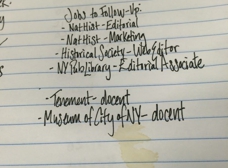 Jobs to Follow-Up:
- Nat Hist - Editorial
- Nat Hist - Marketing
- Historical Society - Web Editor
- NY Pub Library - Editorial Associate
- Tenement - docent
- Museum of City of NY - docent